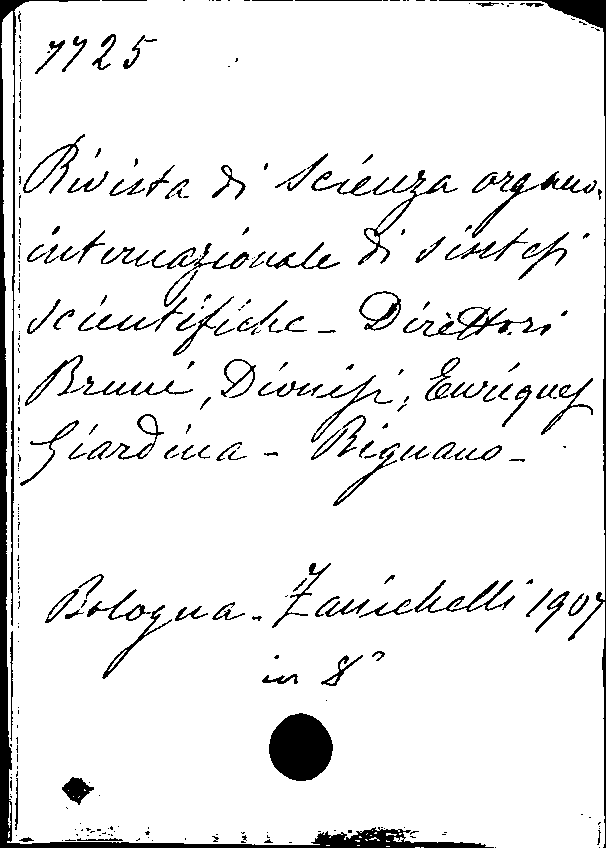 7725
Rivista di Scienza organo
internazionale di sintesi
scientifiche - Direttori
Bruni, Dionisi, Enriques
Giardina - Rignano -
Bologna - Zanichelli 1907
in 8°